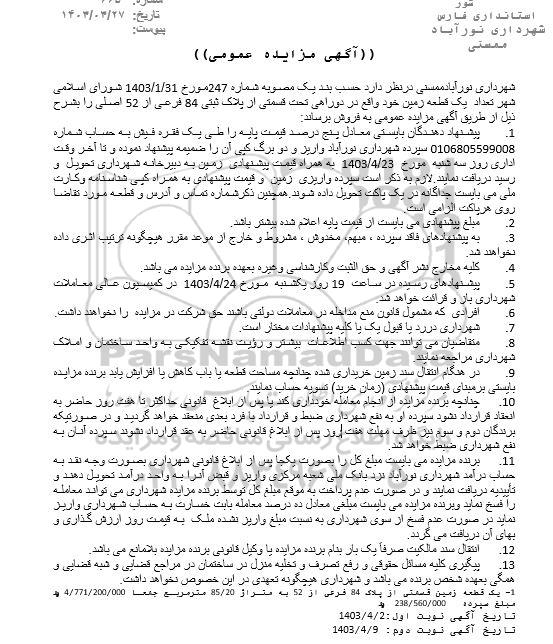 شماره:
کشور
تاریخ: ۱۴۰۳/۰۳/۲۷
استانداری فارس
پیوست:
شهرداری نورآباد
ممسنی
((آگهی مزایده عمومی))
شهرداری نورآبادممسنی درنظر دارد حسب بند یک مصوبه شماره 247مورخ 1403/1/31 شورای اسلامی
شهر تعداد یک قطعه زمین خود واقع در دوراهی تحت قسمتی از پلاک ثبتی 84 فرعی از 52 اصلی را بشرح
ذیل از طریق آگهی مزایده عمومی به فروش برساند:
1. پیشنهاد دهندگان بایستی معادل پنج درصد قیمت پایه را طی یک فقره فیش به حساب شماره
0106805599008 سپرده شهرداری نورآباد واریز و دو برگ کپی آن را ضمیمه پیشنهاد نموده و تا آخر وقت
اداری روز سه شنبه مورخ 1403/4/23 به همراه قیمت پیشنهادی زمین به دبیرخانه شهرداری تحویل و
رسید دریافت نمایند.لازم به ذکر است سپرده واریزی زمین و قیمت پیشنهادی به همراه کپی شناسنامه وکارت
ملی می بایست جداگانه در یک پاکت تحویل داده شوند.همچنین ذکرشماره تماس و آدرس و قطعه مورد تقاضا
روی هرپاکت الزامی است.
2. مبلغ پیشنهادی می بایست از قیمت پایه اعلام شده بیشتر باشد.
3. به پیشنهادهای فاقد سپرده ، مبهم، مخدوش ، مشروط و خارج از موعد مقرر هیچگونه ترتیب اثری داده
نخواهند شد.
4. کلیه مخارج نشر آگهی و حق الثبت وکارشناسی وغیره بعهده برنده مزایده می باشد.
5. پیشنهادهای رسیده در ساعت 19 روز یکشنبه مورخ 1403/4/24 در کمیسیون عالی معاملات
شهرداری باز و قرائت خواهد شد.
6. افرادی که مشمول قانون منع مداخله در معاملات دولتی باشند حق شرکت در مزایده را نخواهند داشت.
7. شهرداری دررد یا قبول یک یا کلیه پیشنهادات مختار است.
8. متقاضیان می توانند جهت کسب اطلاعات بیشتر و رؤیت نقشه تفکیکی به واحد ساختمان و املاک
شهرداری مراجعه نمایند.
9. در هنگام انتقال سند زمین خریداری شده چنانچه مساحت قطعه یا باب کاهش یا افزایش یابد برنده مزایده
بایستی برمبنای قیمت پیشنهادی (زمان خرید) تسویه حساب نمایند.
10. چنانچه برنده مزایده از انجام معامله خودداری کند یا پس از ابلاغ قانونی حداکثر تا هفت روز حاضر به
انعقاد قرارداد نشود سپرده او به نفع شهرداری ضبط و قرارداد با فرد بعدی منعقد خواهد گردید و در صورتیکه
برندگان دوم و سوم نیز ظرف مهلت هفت روز پس از ابلاغ قانونی حاضر به عقد قرارداد نشوند سپرده آنان به
نفع شهرداری ضبط خواهد شد.
11. برنده مزایده می بایست مبلغ کل را بصورت یکجا پس از ابلاغ قانونی شهرداری بصورت وجه نقد به
حساب درآمد شهرداری نورآباد نزد بانک ملی شعبه مرکزی واریز و قبض آنرا به واحد درآمد تحویل دهند و
تأییدیه دریافت نمایند و در صورت عدم پرداخت به موقع مبلغ کل توسط برنده مزایده شهرداری می تواند معامله
را فسخ نماید وبرنده مزایده می بایست مبلغی معادل ده درصد معامله بابت خسارت به حساب شهرداری واریز
نماید در صورت عدم فسخ از سوی شهرداری به نسبت مبلغ واریز نشده ملک به قیمت روز ارزش گذاری و
بهای آن دریافت می گردد.
12. انتقال سند مالکیت صرفاً یک بار بنام برنده مزایده یا وکیل قانونی برنده مزایده بلامانع می باشد.
13. پیگیری کلیه مسائل حقوقی و رفع تصرف و تخلیه منزل در ساختمان در مراجع قضایی و شبه قضایی و
همگی بعهده شخص برنده می باشد و شهرداری هیچگونه تعهدی در این خصوص نخواهد داشت.
1- یک قطعه زمین قسمتی از پلاک 84 فرعی از 52 به متراژ 85/20 مترمربع جمعا 4/771/200/000
مبلغ سپرده 238/560/000
تاریخ آگهی نوبت اول:1403/4/2
تاریخ آگهی نوبت دوم : 1403/4/9
ParsNamadData